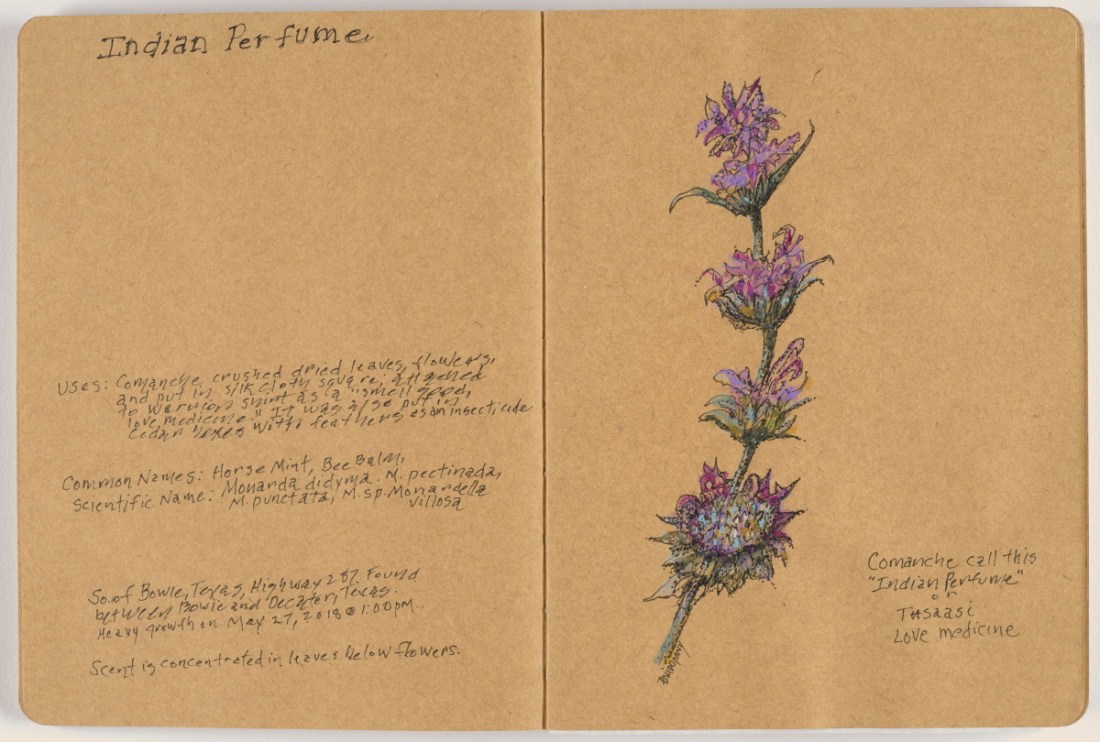 Indian Perfume.
Uses: Comanche crushed dried leaves, flowers,
and put in silk cloth square, attached
to warrior shirt as a "smell good,
love medicine." It was also put in
cedar boxes with feathers as an insecticide
Common Names: Horse Mint, Bee Balm,
Scientific Name: Monarda didyma. M. pectinada,
M. punctata, M. sp. Monardella
villosa
So. of Bowie, Texas, Highway 287. Found
between Bowie and Decater, Texas.
Heavy growth on May 27, 2018 @ 1:00pm.
Scent is concentrated in leaves below flowers.
Comanche call this
"Indian Perfume"
or
Tʉsaasi
Love medicine